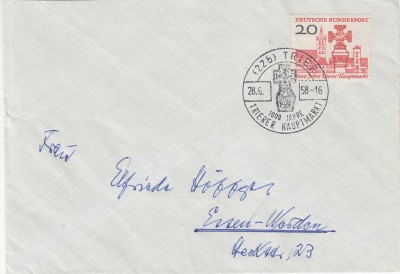 DEUTSCHE BUNDESPOST
20
1000 Jahre Trierer Hauptmarkt
(22b) TRIER
28.6. 58-16
1000 JAHRE
TRIERER HAUPTMARKT
Frau
Elfriede
Essen-Werden
Heckstr. 23